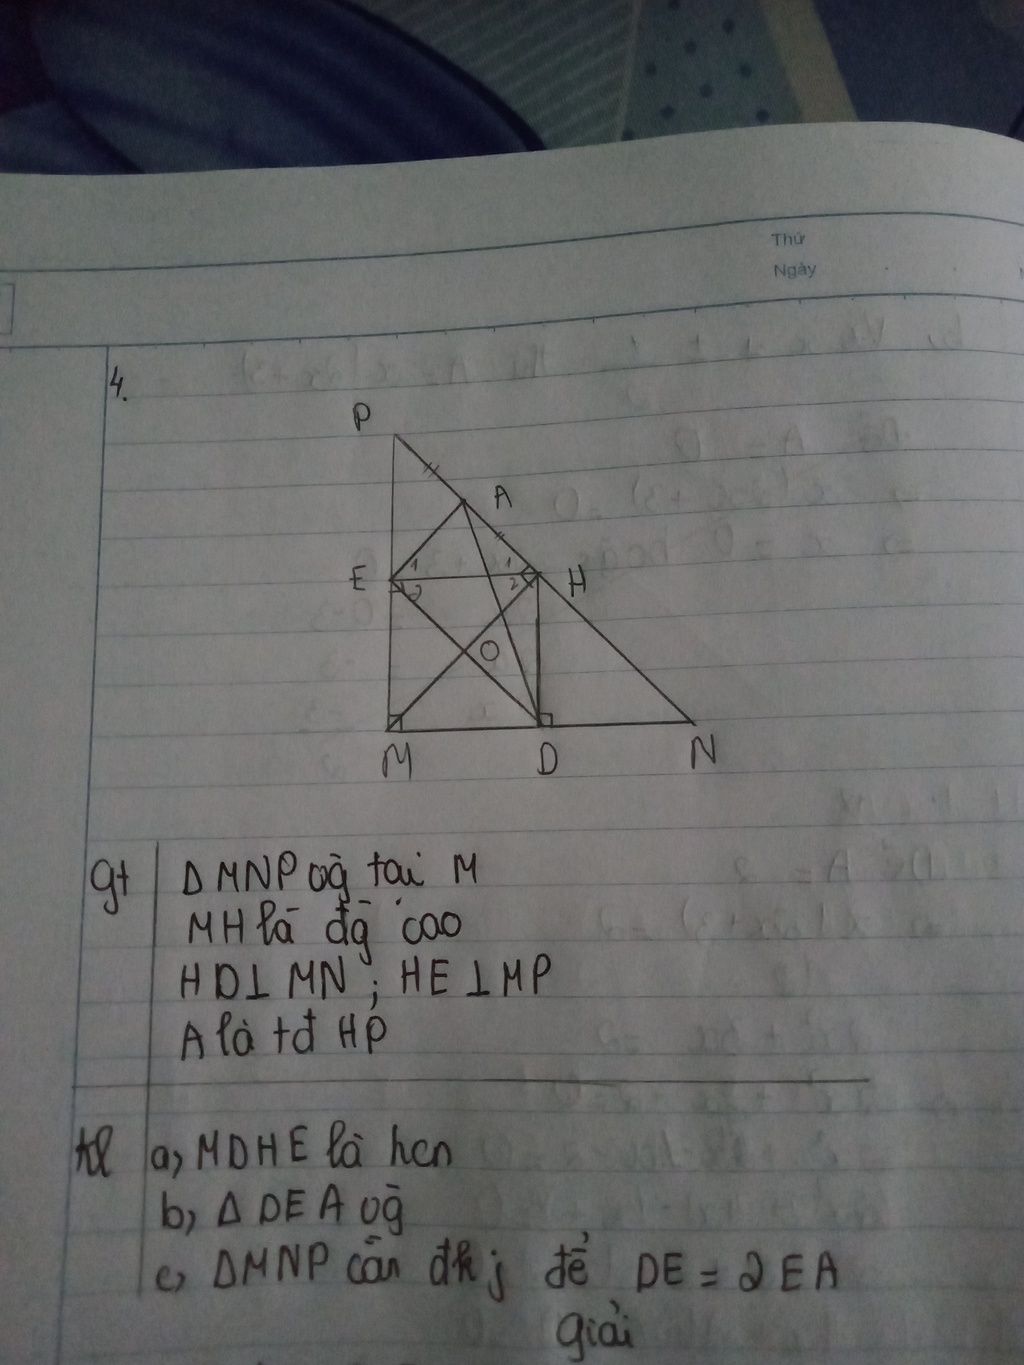 Thứ
Ngày
4.
P
A
E 1 2
1 2 H
O
M D N
gt Δ MNP vg̀ tại M
MH là đg̀ cao
HD⊥ MN ; HE ⊥ MP
A là tđ HP
kl a, MDHE là hcn
b, Δ DEA vg̀
c, ΔMNP cần đk j để DE = 2 EA
Giải